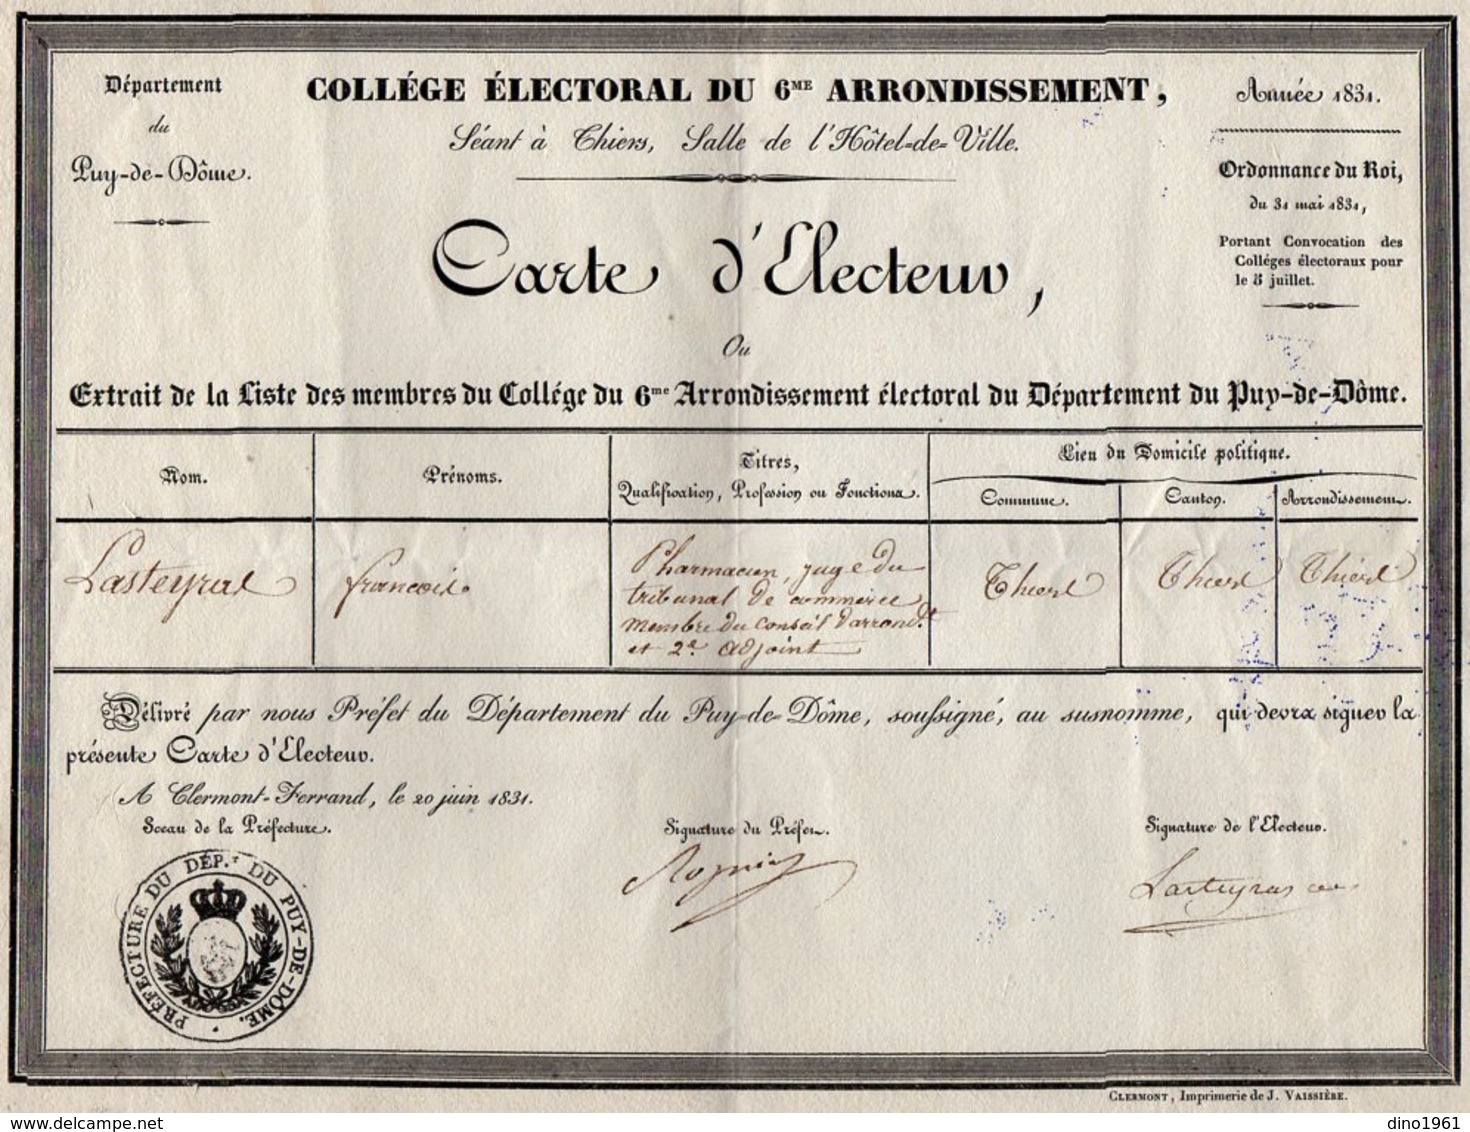 Département
du
Puy-de-Dôme.
COLLÉGE ÉLECTORAL DU 6ME ARRONDISSEMENT,
Séant à Thiers, Salle de l'Hôtel-de-Ville.
Année 1831.
Ordonnance du Roi,
du 31 mai 1831,
Portant Convocation des
Colléges électoraux pour
le 5 juillet.
Carte d'Electeur,
Ou
Extrait de la Liste des membres du Collége du 6me Arrondissement électoral du Département du Puy-de-Dôme.
Nom.
Prénoms.
Titres,
Qualification, Profession ou Fonctions.
Lieu du Domicile politique.
Commune.
Canton.
Arrondissement.
Lasteyras
francois
Pharmacien, juge du
tribunal de commerce
membre du conseil d'arrondt
et 2e adjoint
Thiers
Thiers
Thiers
Délivré par nous Préfet du Département du Puy-de-Dôme, soussigné, au susnomme, qui devra signer la
présente Carte d'Electeur.
A Clermont-Ferrand, le 20 juin 1831.
Sceau de la Préfecture.
Signature du Préfet.
Signature de l'Electeur.
Lasteyras
PRÉFECTURE DU DÉP.T DU PUY-DE-DÔME.
CLERMONT, Imprimerie de J. VAISSIÈRE.
dino1961